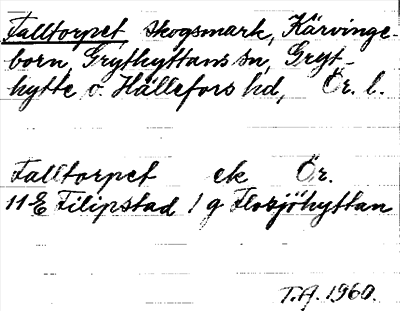 Falltorpet, Skogsmark, Kärvinge-
born, Grythyttans sn, Gryt-
hytte o. Hällefors hd, Ör. l.
Falltorpet ek Ör.
11 E Filipstad 1 g Flosjöhyttan
T.A. 1960.